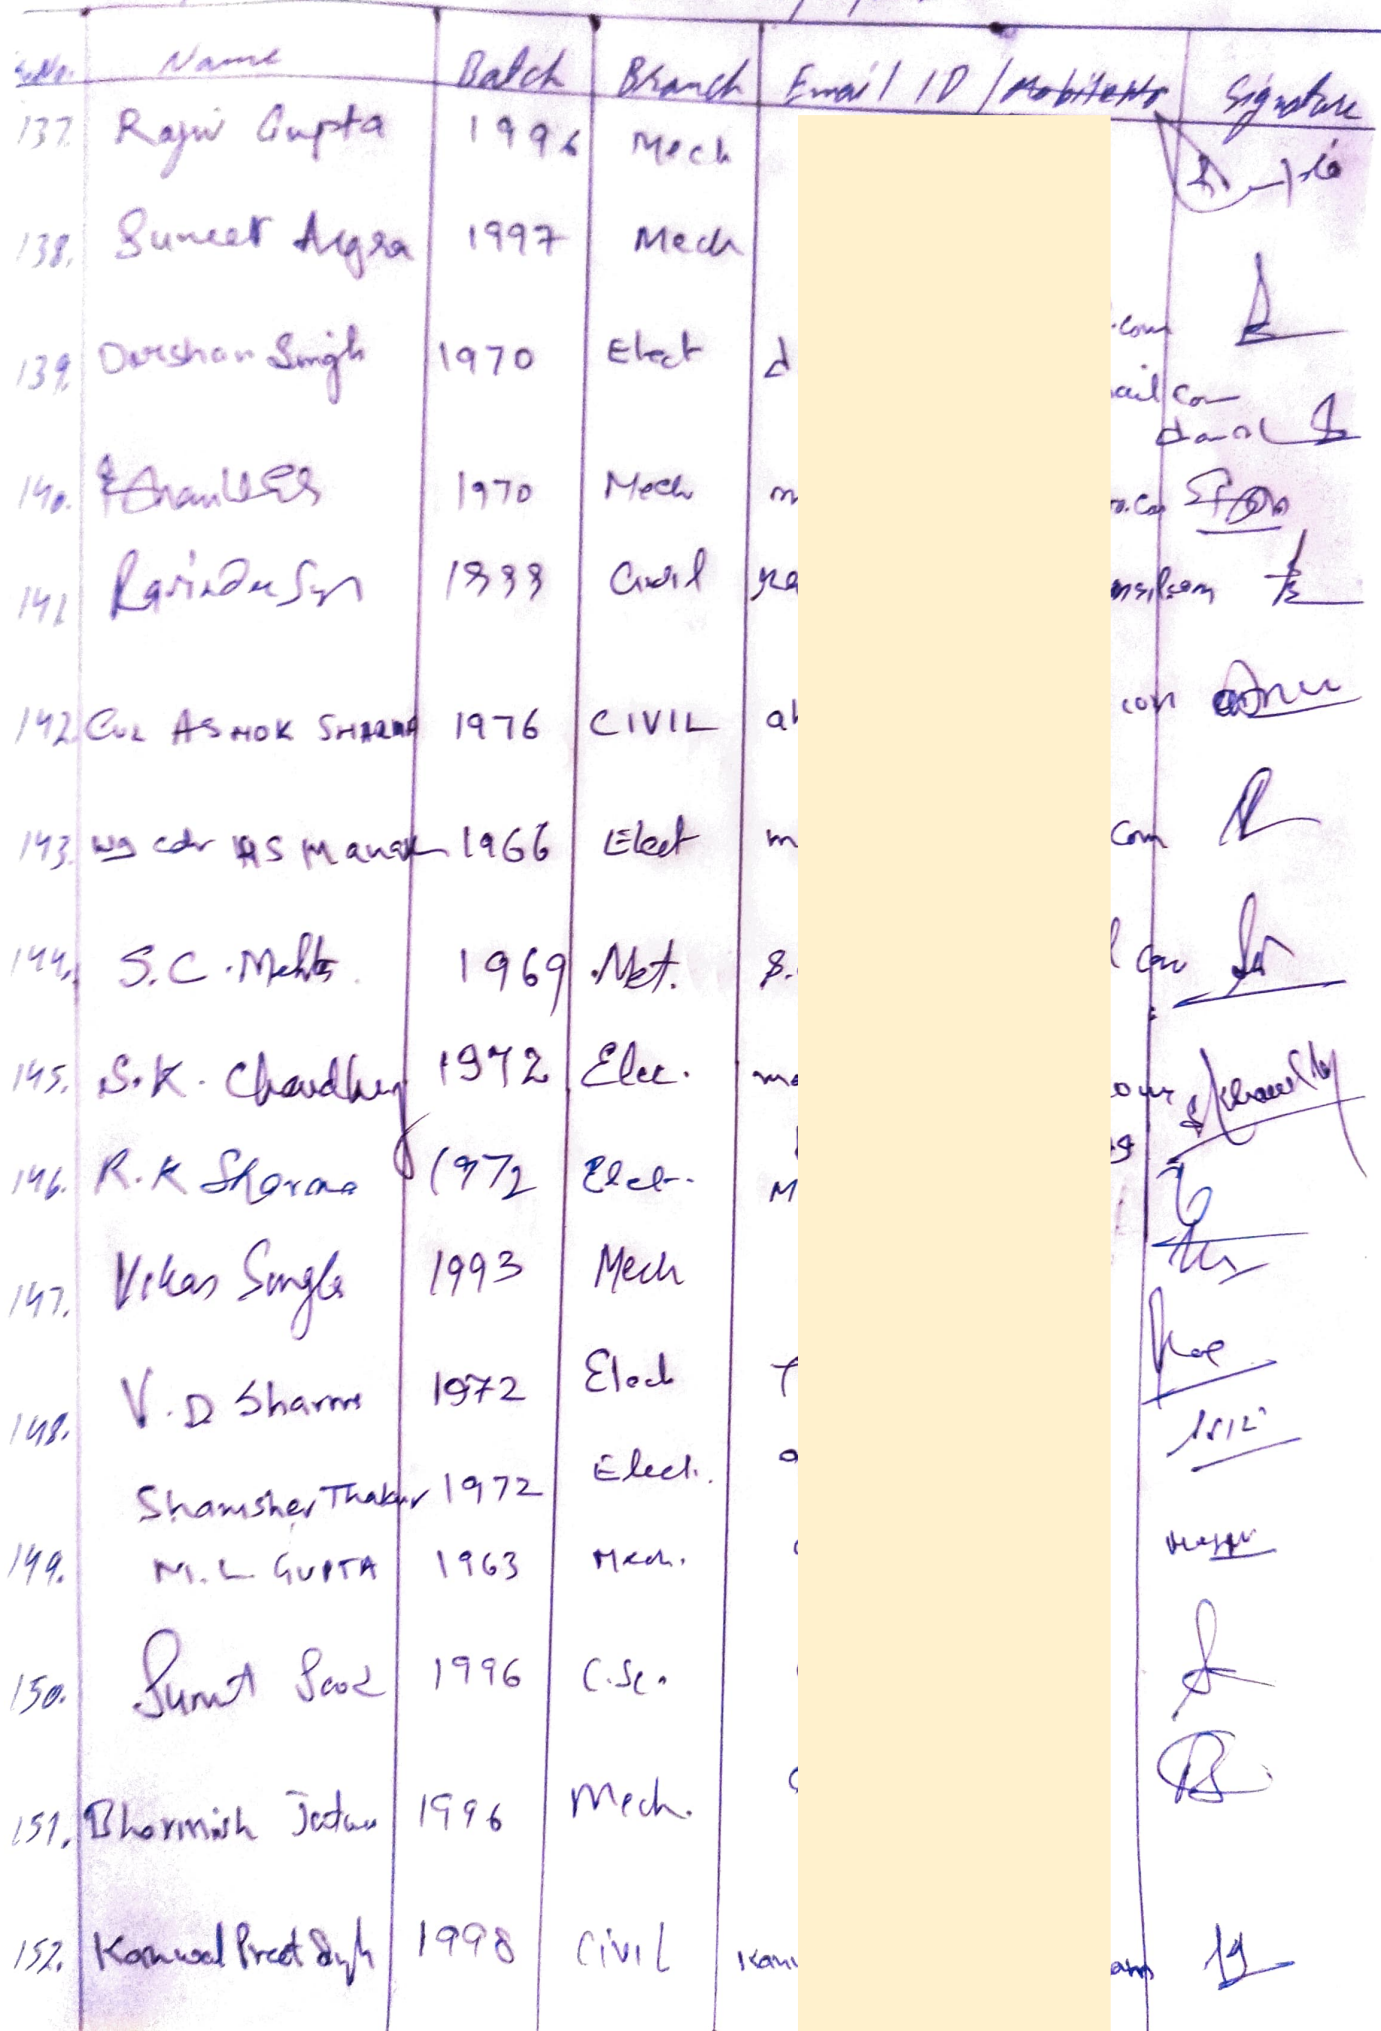 S.No. Name Batch Branch Email ID / Mobile No Signature
137. Rajiv Gupta 1996 Mech
138. Suneet Arora 1997 Mech
.com
139. Darshan Singh 1970 Elect d
ail com
140. 1970 Mech m
141 Ravinder 1999 Civil
142. Col ASHOK SHARMA 1976 CIVIL con
143. Wg cdr AS Manak 1966 Elect m com
144. S.C. Mehta 1969 Met. s.
145. S.K. Chaudhry 1972 Elec. ma
146. R.K Sharma 1972 Elect. M
147. Vikas Singla 1993 Mech
148. V.D Sharma 1972 Elect
Shamsher Thakur 1972 Elect.
149. M.L GUPTA 1963 Mech.
150. Sumit Sood 1996 C.Sc.
151. 1996 Mech.
152. Kanwal Preet Singh 1998 Civil kan